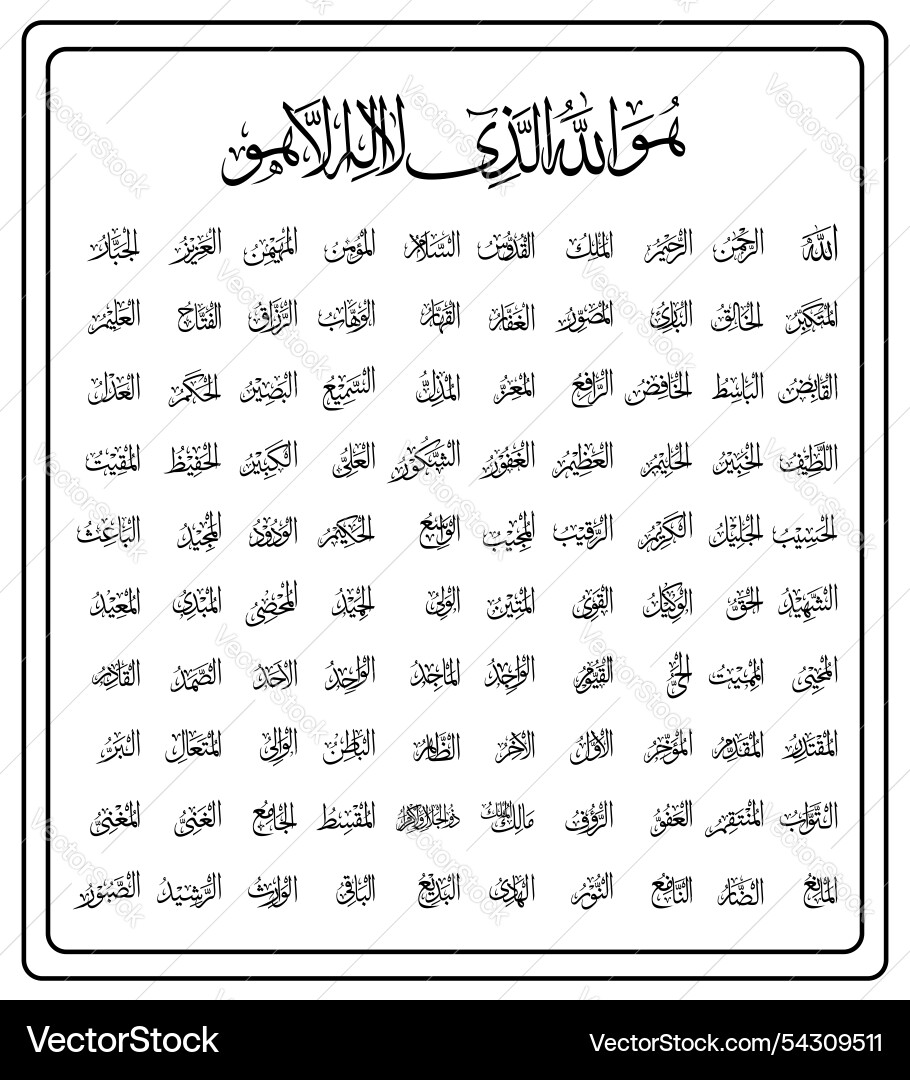 هُوَ اللَّهُ الَّذِي لَا إِلَهَ إِلَّا هُوَ
اللَّه الرَّحْمَنُ الرَّحِيمُ الْمَلِكُ الْقُدُّوسُ السَّلَامُ الْمُؤْمِنُ الْمُهَيْمِنُ الْعَزِيزُ الْجَبَّارُ
الْمُتَكَبِّرُ الْخَالِقُ الْبَارِئُ الْمُصَوِّرُ الْغَفَّارُ الْقَهَّارُ الْوَهَّابُ الرَّزَّاقُ الْفَتَّاحُ الْعَلِيمُ
الْقَابِضُ الْبَاسِطُ الْخَافِضُ الرَّافِعُ الْمُعِزُّ الْمُذِلُّ السَّمِيعُ الْبَصِيرُ الْحَكَمُ الْعَدْلُ
اللَّطِيفُ الْخَبِيرُ الْحَلِيمُ الْعَظِيمُ الْغَفُورُ الشَّكُورُ الْعَلِيُّ الْكَبِيرُ الْحَفِيظُ الْمُقِيتُ
الْحَسِيبُ الْجَلِيلُ الْكَرِيمُ الرَّقِيبُ الْمُجِيبُ الْوَاسِعُ الْحَكِيمُ الْوَدُودُ الْمَجِيدُ الْبَاعِثُ
الشَّهِيدُ الْحَقُّ الْوَكِيلُ الْقَوِيُّ الْمَتِينُ الْوَلِيُّ الْحَمِيدُ الْمُحْصِي الْمُبْدِئُ الْمُعِيدُ
الْمُحْيِي الْمُمِيتُ الْحَيُّ الْقَيُّومُ الْوَاجِدُ الْمَاجِدُ الْوَاحِدُ الْأَحَدُ الصَّمَدُ الْقَادِرُ
الْمُقْتَدِرُ الْمُقَدِّمُ الْمُؤَخِّرُ الْأَوَّلُ الْآخِرُ الظَّاهِرُ الْبَاطِنُ الْوَالِي الْمُتَعَالِ الْبَرُّ
التَّوَّابُ الْمُنْتَقِمُ الْعَفُوُّ الرَّؤُوفُ مَالِكُ الْمُلْكِ ذُو الْجَلَالِ وَالْإِكْرَامِ الْمُقْسِطُ الْجَامِعُ الْغَنِيُّ الْمُغْنِي
الْمَانِعُ الضَّارُّ النَّافِعُ النُّورُ الْهَادِي الْبَدِيعُ الْبَاقِي الْوَارِثُ الرَّشِيدُ الصَّبُورُ
VectorStock
VectorStock.com/54309511